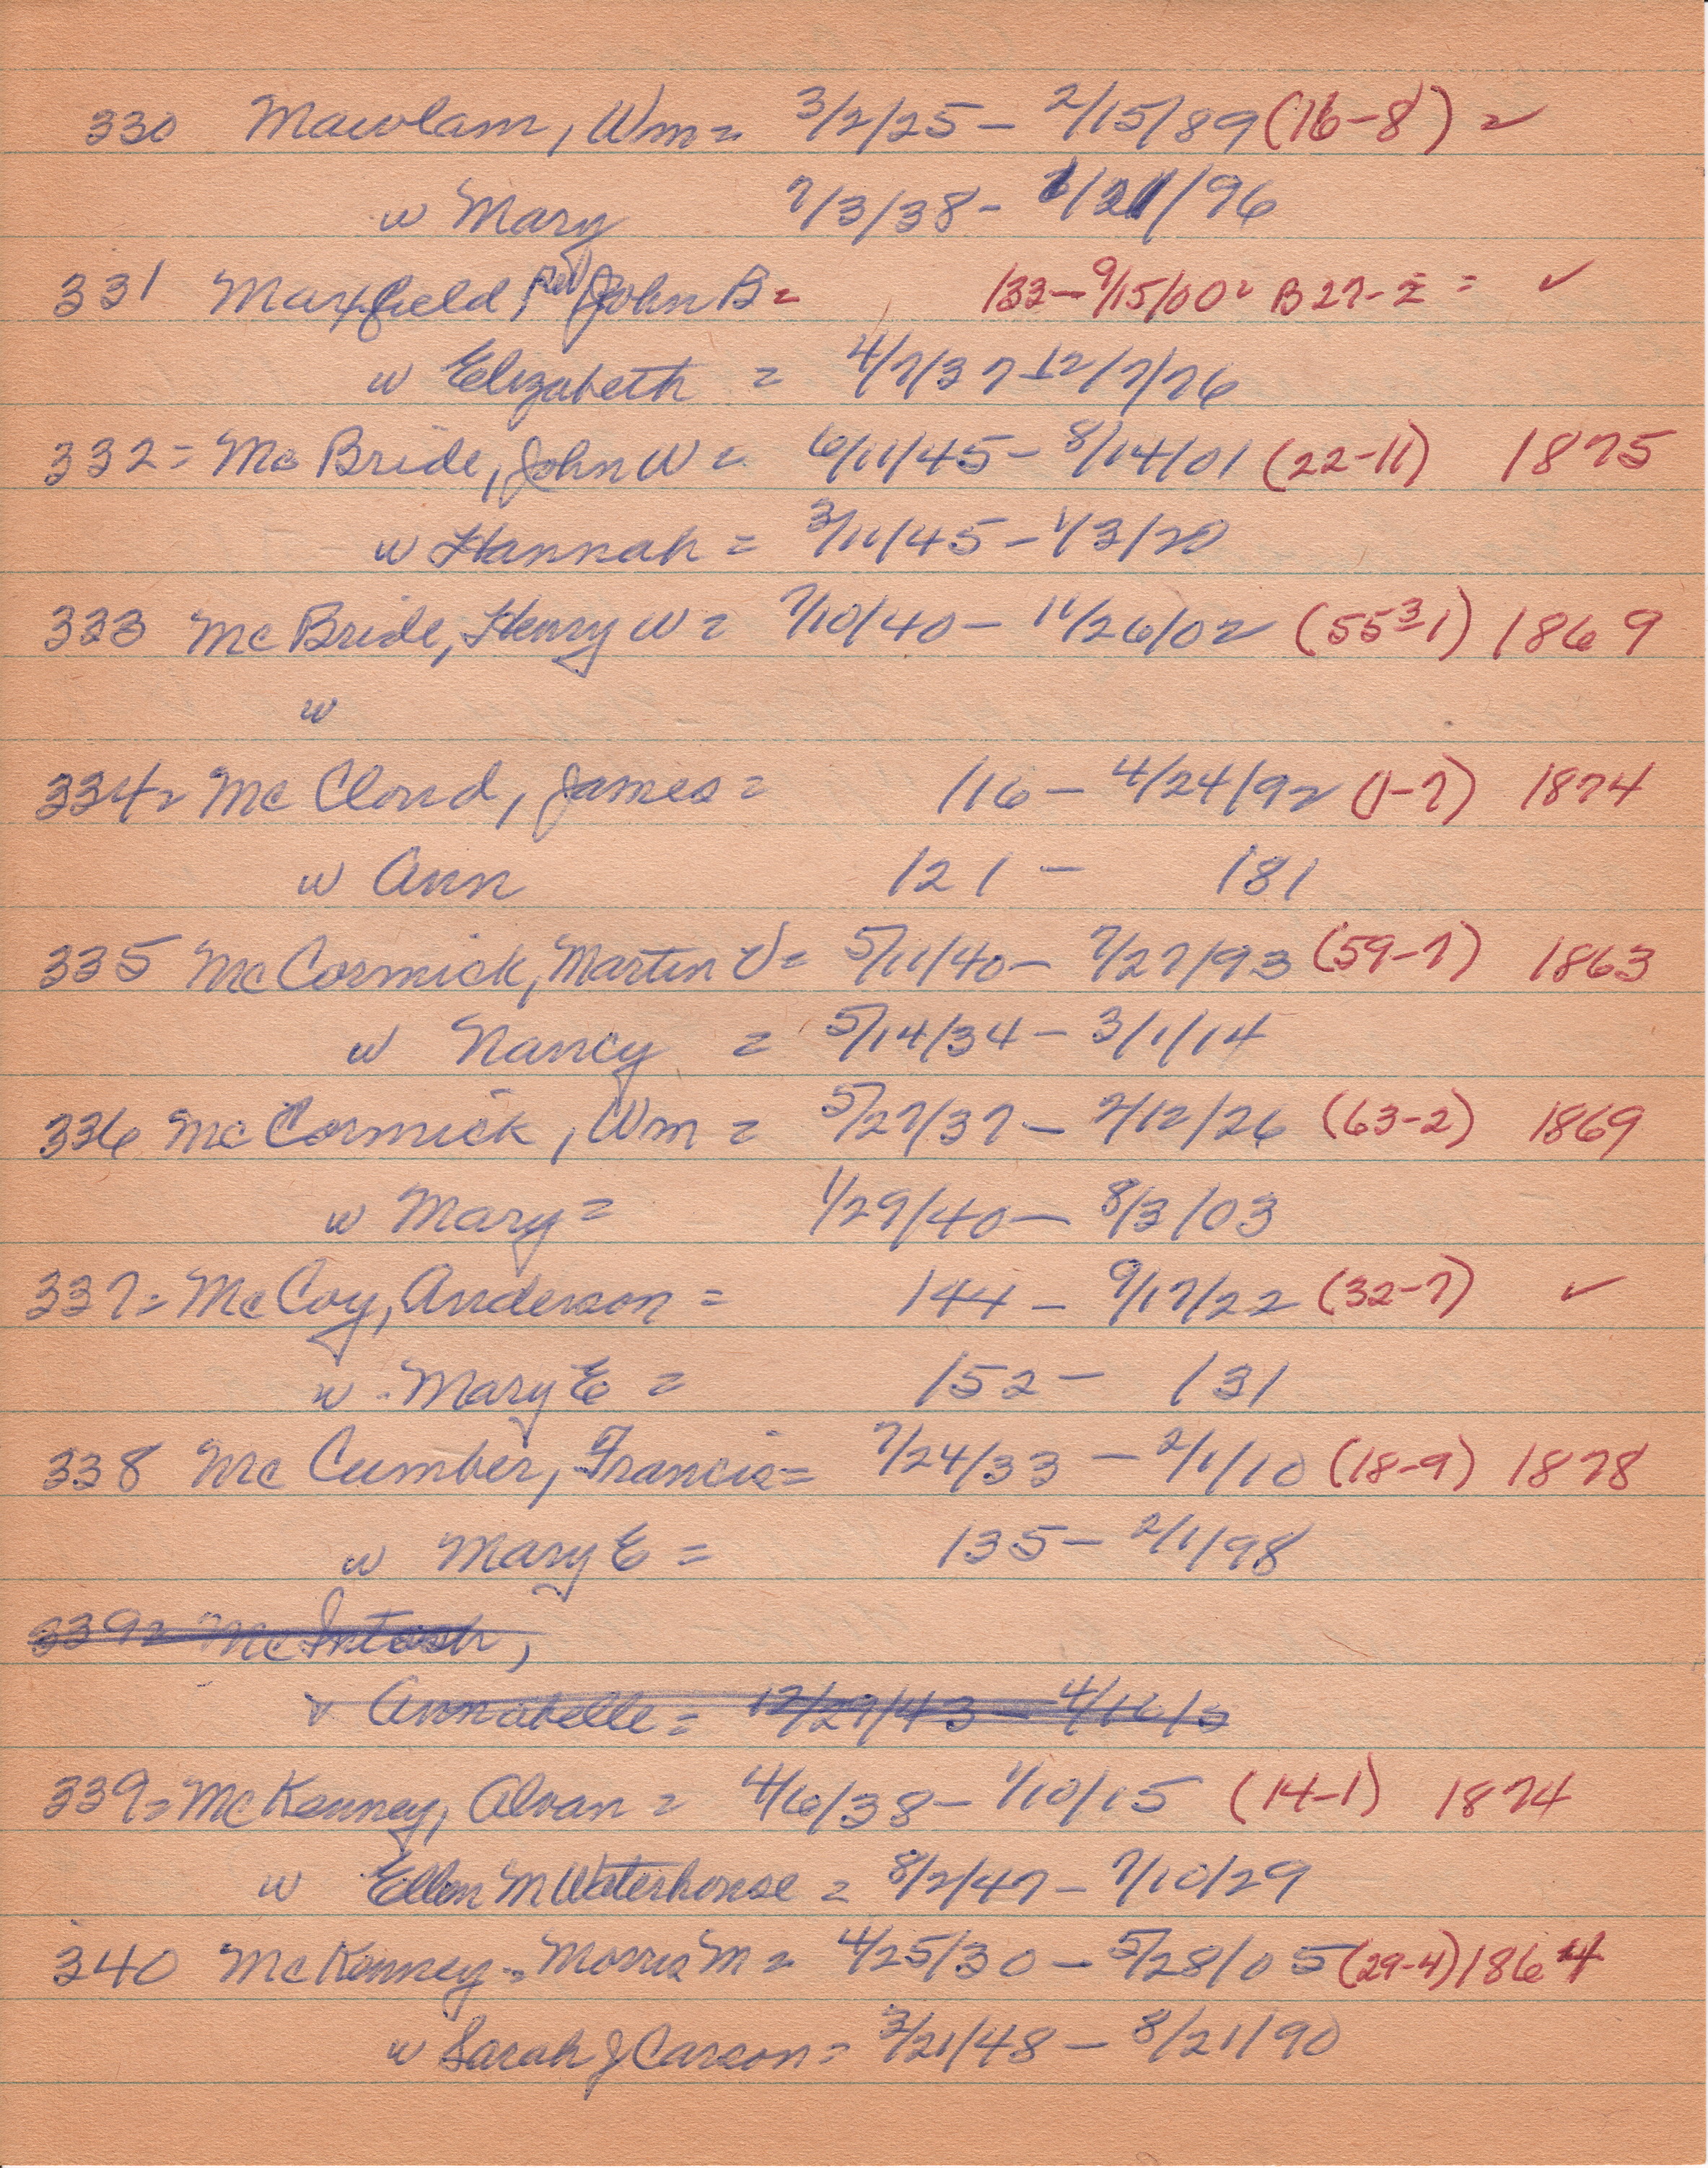 330 Mawlam, Wm = 3/2/25 – 2/15/89 (16-8) ✓
w Mary 7/3/38 – /21/96
331 Maxfield, Rev John B = 133 – 9/15/00 = B27-2 = ✓
w Elizabeth = 4/7/37 – 12/7/76
332 = Mc Bride, John W = 6/11/45 – 8/14/01 (22-11) 1875
w Hannah = 3/11/45 – 1/3/20
333 Mc Bride, Henry W = 7/10/40 – 11/26/02 (553-1) 1869
w
334 = Mc Cloud, James = /16 – 4/24/92 (1-7) 1874
w Ann /21 – /81
335 McCormick, Martin V = 5/11/40 – 7/27/93 (59-7) 1863
w Nancy = 5/14/34 – 3/1/14
336 McCormick, Wm = 5/27/37 – 2/12/26 (63-2) 1869
w Mary = 1/29/40 – 8/3/03
337 = McCoy, Anderson = /44 – 9/17/22 (32-7) ✓
w. Mary E = /52 – /31
338 Mc Cumber, Francis = 7/24/33 – 2/1/10 (18-9) 1878
w Mary E = /35 – 2/1/98
339 = McIntosh,
Annabelle = 12/27/43 – 4/16/3
339 = McKenney, Alvan = 4/6/38 – 1/10/15 (14-1) 1874
w Ellen M Waterhouse = 8/2/47 – 7/10/29
340 McKenney = Morris M = 4/25/30 – 5/28/05 (29-4) 1864
w Sarah J Carson = 3/21/48 – 8/21/90